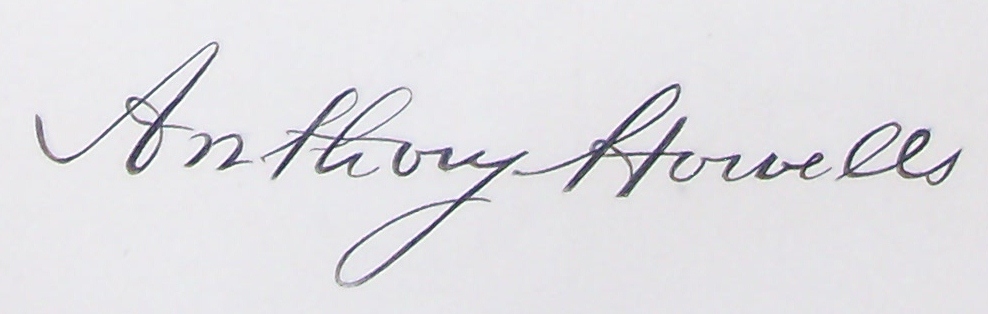 Anthony Howells